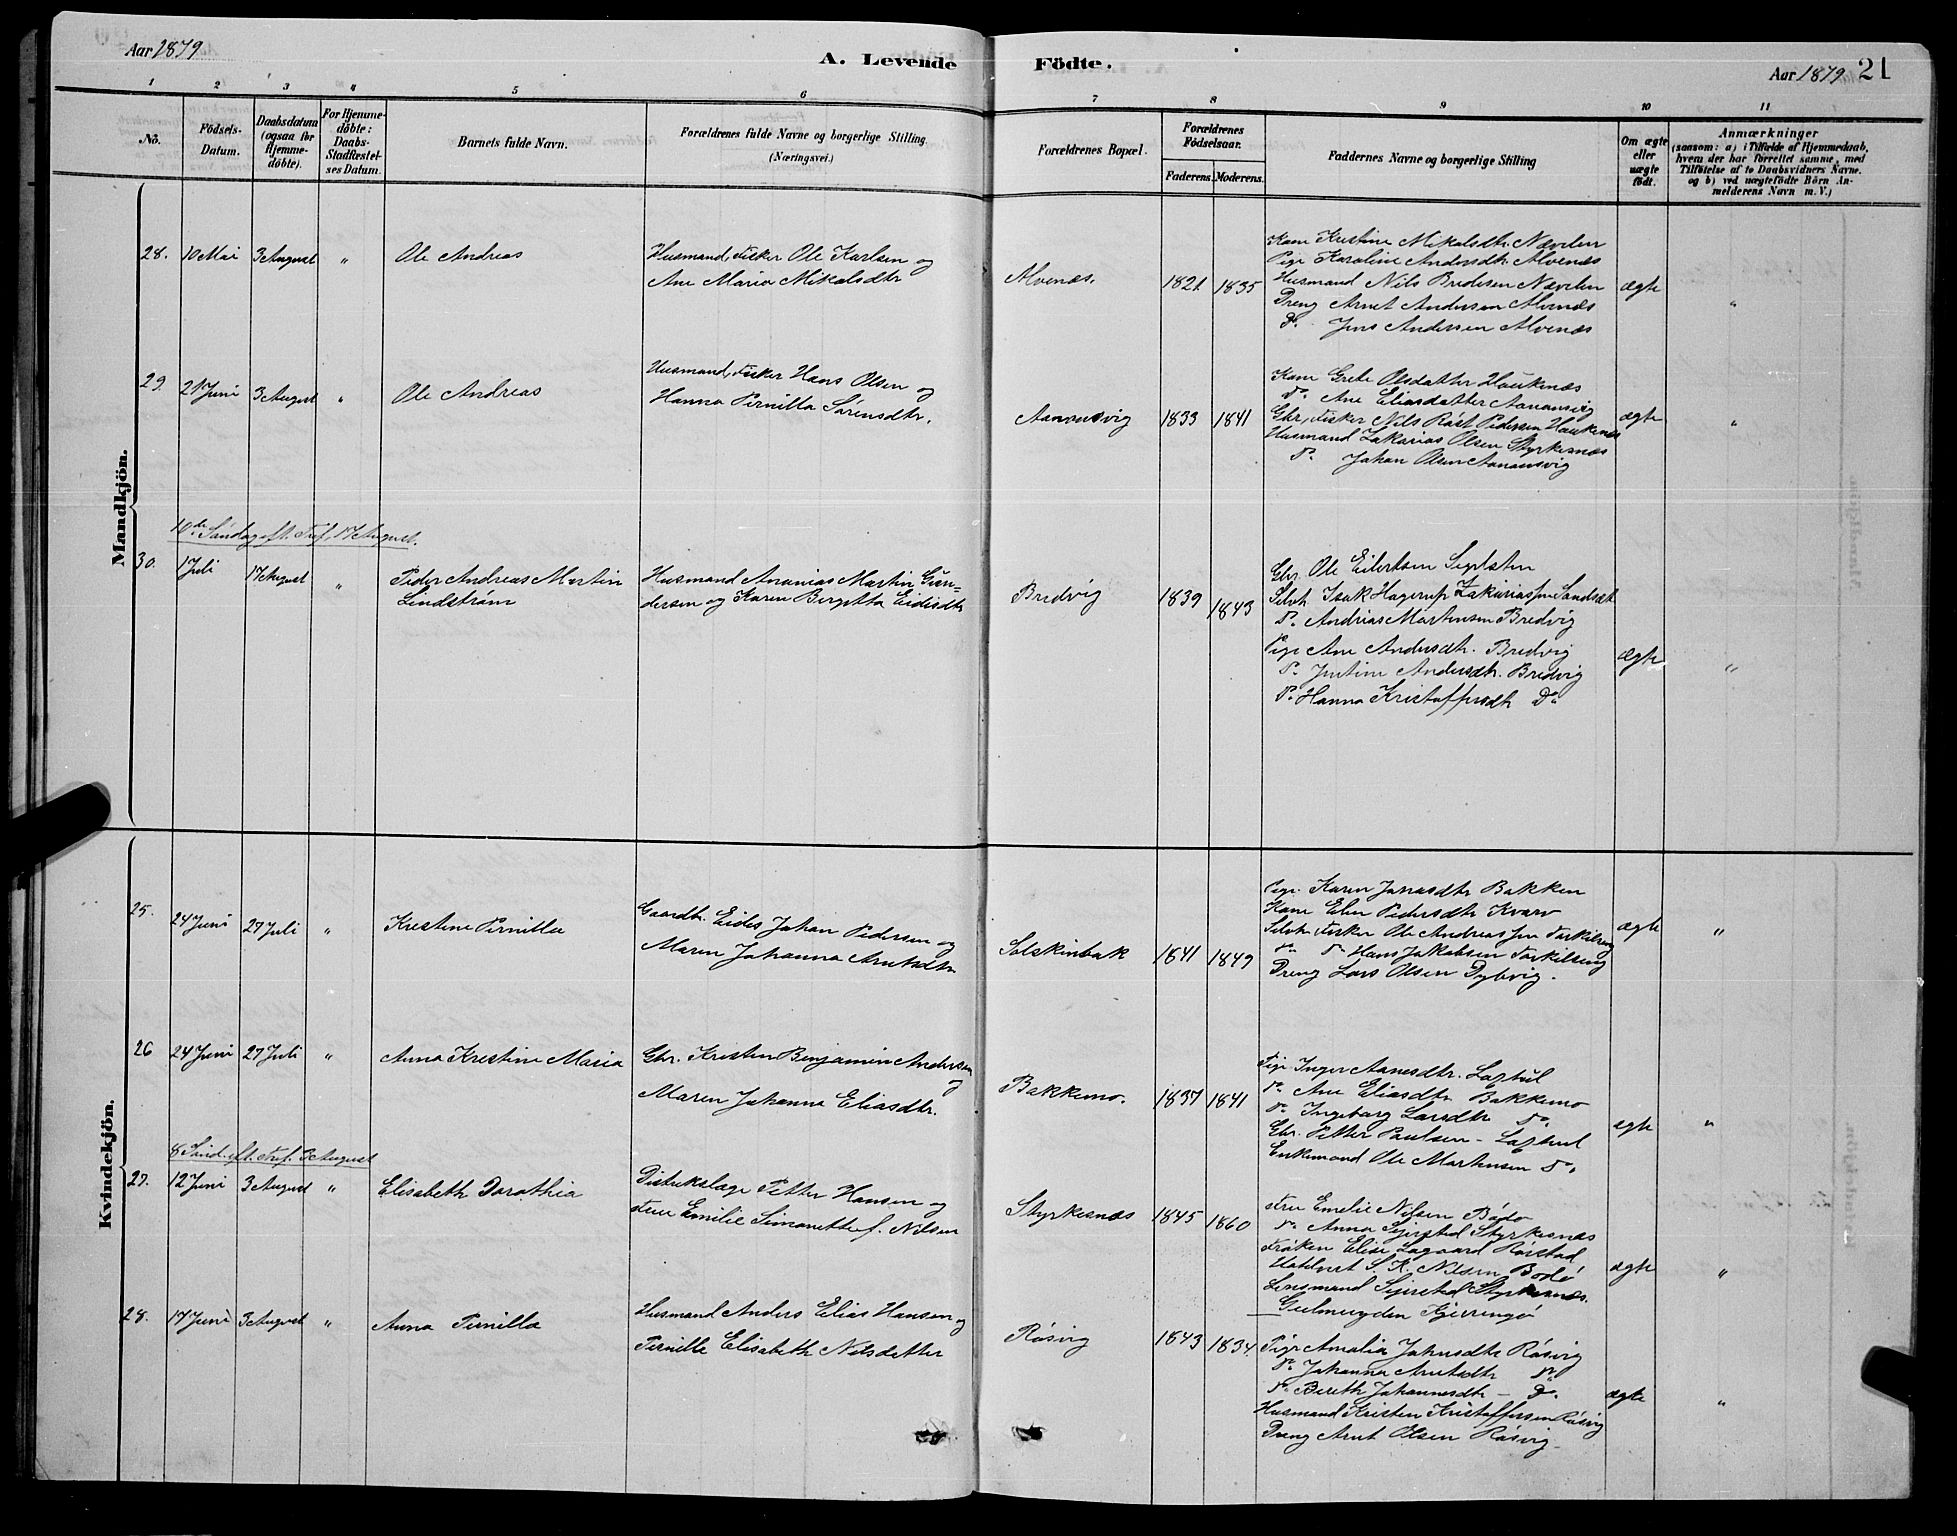 Aar 1879
A. Levende Födte.
Aar 1879 21
1 2 3 4 5 6 7 8 9 10 11
No.
Födsels-Datum.
Daabsdatum (ogsaa for Hjemme-döbte).
For Hjemme-döbte: Daabs-Stadfæstel-ses Datum.
Barnets fulde Navn.
Forældrenes fulde Navne og borgerlige Stilling. (Næringsvei.)
Forældrenes Bopæl.
Forældrenes Födselsaar.
Faderens. Moderens.
Faddernes Navne og borgerlige Stilling
Om ægte eller uægte födt.
Anmærkninger
(saasom: a) i Tilfælde af Hjemmedaab, hvem der har forrettet samme, med Tilföielse af to Daabsvidners Navne. og b) ved uægtefödte Börn An-melderens Navn m. V.)
Mandkjön.
28. 10 Mai 3 August " Ole Andreas
Husmand, Fisker Ole Karlsen og
Ane Maria Mikalsdtr
Alvenæs. 1821 1835
Kone Kristine Mikalsdtr. Nævelsn
Pige Karoline Andersdtr. Alvenæs
Husmand Nils Bredesen Nævelsn
Dreng Arnet Andersen Alvenæs
Do. Jens Andersen Alvenæs
ægte "
29. 21 Juni 3 August " Ole Andreas
Husmand, Fisker Hans Olsen og
Hanna Pernilla Sörensdtr.
Aanonsvig 1833 1841
Kone Grete Olsdatter Haukenæs
Do. Ane Eliasdatter Aanonsvig
Gbr., Fisker Nils Röst Pedersen Haukenæs
Husmand Zakarias Olsen Styrkesnæs
Do. Johan Olsen Aanonsvig
ægte "
10de Söndag eft. Tref. 17 August.
30. 1 Juli 17 August " Peder Andreas Martin
Lindström
Husmand Ananias Martin Gun-
dersen og Karen Bergitta Eidisdtr
Bredvig 1839 1843
Gbr. Ole Eilertsen
Selvh. Isak Hagerup Zakariassen Sandsæt
Do. Andrias Martensen Bredvig
Pige Ane Andersdtr. Bredvig
Do. Justine Andersdtr. Bredvig
Do. Hanna Kristoffersdtr Do.
ægte "
Kvindekjön.
25. 24 Juni 27 Juli " Kristine Pernilla
Gaardbr. Eidis Johan Pedersen og
Maren Johanna Arntsdtr
Solskinbak 1841 1849
Pige Karen Jonasdtr Bakken
Kone Elen Pedersdtr Kvarv
Selvh. Fisker Ole Andreassen Torkilseng
Do. Do. Hans Jakobsen Torkilseng
Dreng Lars Olsen Dybvig.
ægte "
26 24 Juni 27 Juli " Anna Kristine Maria
Gbr. Kristen Benjamin Andersen
og
Maren Johanna Eliasdtr.
Bakkemo. 1837 1841
Pige Inger Aanesdtr.
Do. Ane Eliasdtr Bakkemo
Do. Ingeborg Larsdtr Do.
Gbr. Petter Paulsen
Enkemand Ole Martensen Do.
ægte "
8 Sönd. eft. Tref. 3 August
27. 12 Juni 3 August " Elisabeth Dorothia
Distrikslæge Petter Hansen og
Frue Emilie Simonette f. Nilsen
Styrkesnæs 1845 1860
Frue Emelie Nilsen Bodö
Do. Anna Sejersted Styrkesnæs
Fröken Elise Rörstad
S. K. Nilsen Bodö
Lensmand Sejersted Styrkesnæs.
Kjerringö
ægte "
28. 17 Juni 3 August " Anna Pernilla
Husmand Anders Elias Hansen og
Pernille Elisabeth Nilsdatter
Rösvig 1843 1834.
Pige Amalia Johnsdtr Rösvig
Do. Johanna Arntsdtr Do.
Do. Bereth Johannesdtr – Do.
Husmand Kristen Kristoffersen Rösvig
Dreng Arnt Olsen Rösvig
ægte "